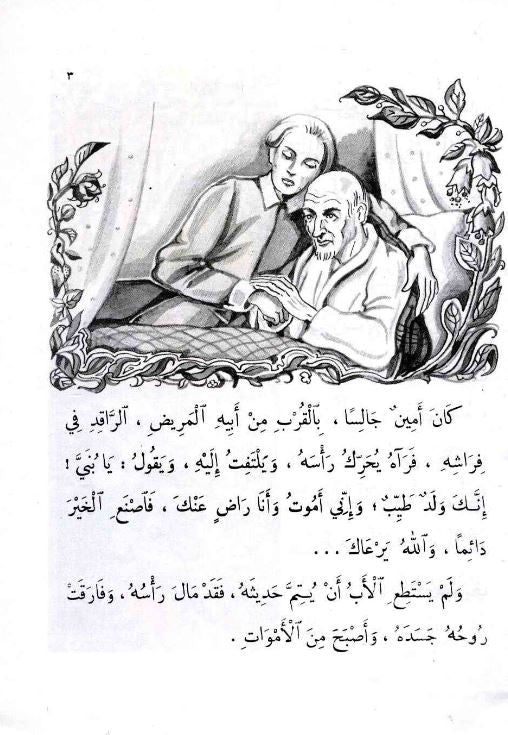 ٣
كَانَ أَمِينٌ جَالِسًا ، بِٱلْقُرْبِ مِنْ أَبِيهِ ٱلْمَرِيضِ ، ٱلرَّاقِدِ فِي
فِرَاشِهِ ، فَرَآهُ يُحَرِّكُ رَأْسَهُ ، وَيَلْتَفِتُ إِلَيْهِ ، وَيَقُولُ : يَا بُنَيَّ !
إِنَّكَ وَلَدٌ طَيِّبٌ ؛ وَإِنِّي أَمُوتُ وَأَنَا رَاضٍ عَنْكَ ، فَٱصْنَعِ ٱلْخَيْرَ
دَائِمًا ، وَٱللهُ يَرْعَاكَ ...
وَلَمْ يَسْتَطِعِ ٱلْأَبُ أَنْ يُتِمَّ حَدِيثَهُ ، فَقَدْ مَالَ رَأْسُهُ ، وَفَارَقَتْ
رُوحُهُ جَسَدَهُ ، وَأَصْبَحَ مِنَ ٱلْأَمْوَاتِ .